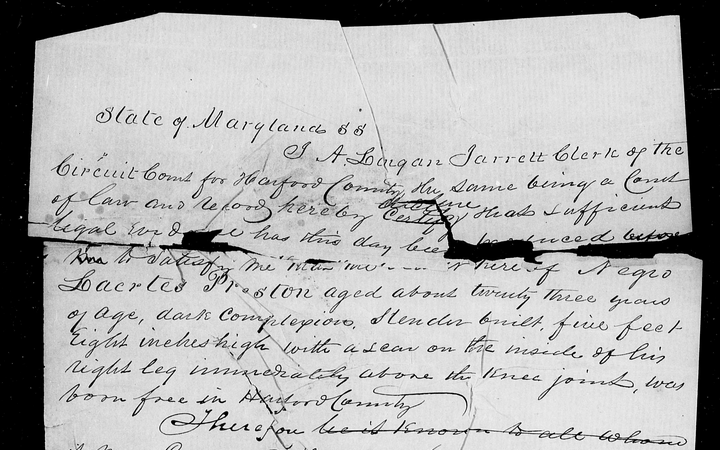 State of Maryland ss
I A. Lingan Jarrett Clerk of the
Circuit Court for Harford County, the same being a Court
of law and record, hereby Certify that sufficient
legal has this day been produced before
to satisfy me that of Negro
Laertes Preston aged about twenty three years
of age, dark Complexion, Slender built, five feet
Eight inches high with a scar on the inside of his
right leg immediately above the Knee joint, was
born free in Harford County
Therefore be it Known to all whom